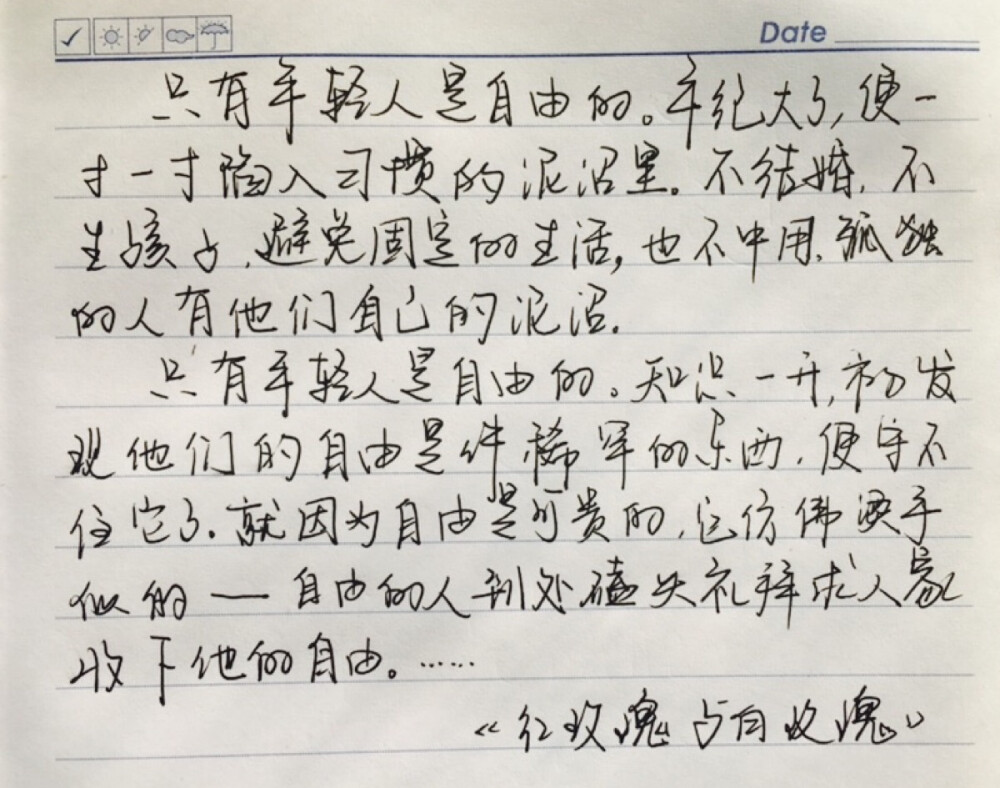 Date
只有年轻人是自由的。年纪大了,便一
寸一寸陷入习惯的泥沼里。不结婚,不
生孩子,避免固定的生活,也不中用。孤独
的人有他们自己的泥沼。
只有年轻人是自由的。知识一开,初发
现他们的自由是件稀罕的东西,便守不
住它了。就因为自由是可贵的,它仿佛烫手
似的——自由的人到处磕头礼拜求人家
收下他的自由。……
《红玫瑰与白玫瑰》